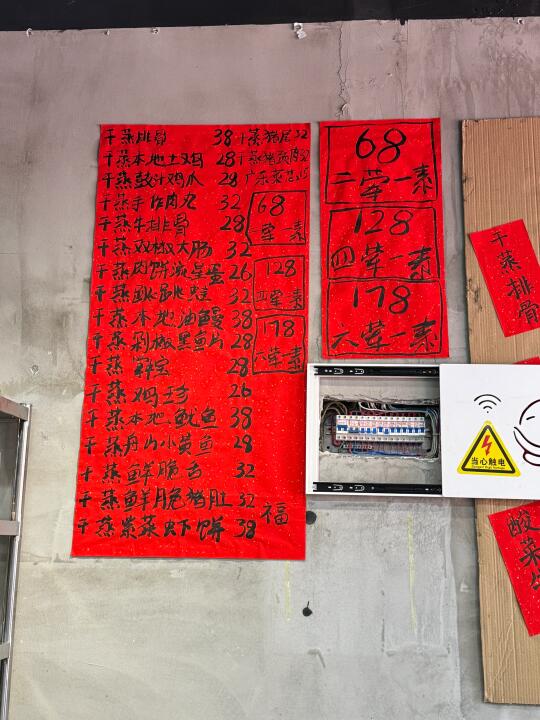 干蒸排骨 38
干蒸本地土鸡 28
干蒸豉汁鸡爪 28
干蒸手作肉丸 32
干蒸牛排骨 28
干蒸双椒大肠 32
干蒸肉饼流星蛋 26
干蒸跳跳蛙 32
干蒸本地油鳗 38
干蒸剁椒黑鱼片 28
干蒸 28
干蒸鸡珍 26
干蒸本地鱿鱼 38
干蒸丹山小黄鱼 28
干蒸鲜脆舌 32
干蒸鲜脆猪肚 32
干蒸紫菜虾饼 38
干蒸猪尾 32
干蒸猪头肉
广东菜芯
68
二荤一素
128
四荤素
178
六荤一素
福
68
二荤一素
128
四荤一素
178
六荤一素
当心触电
干蒸排骨
酸菜